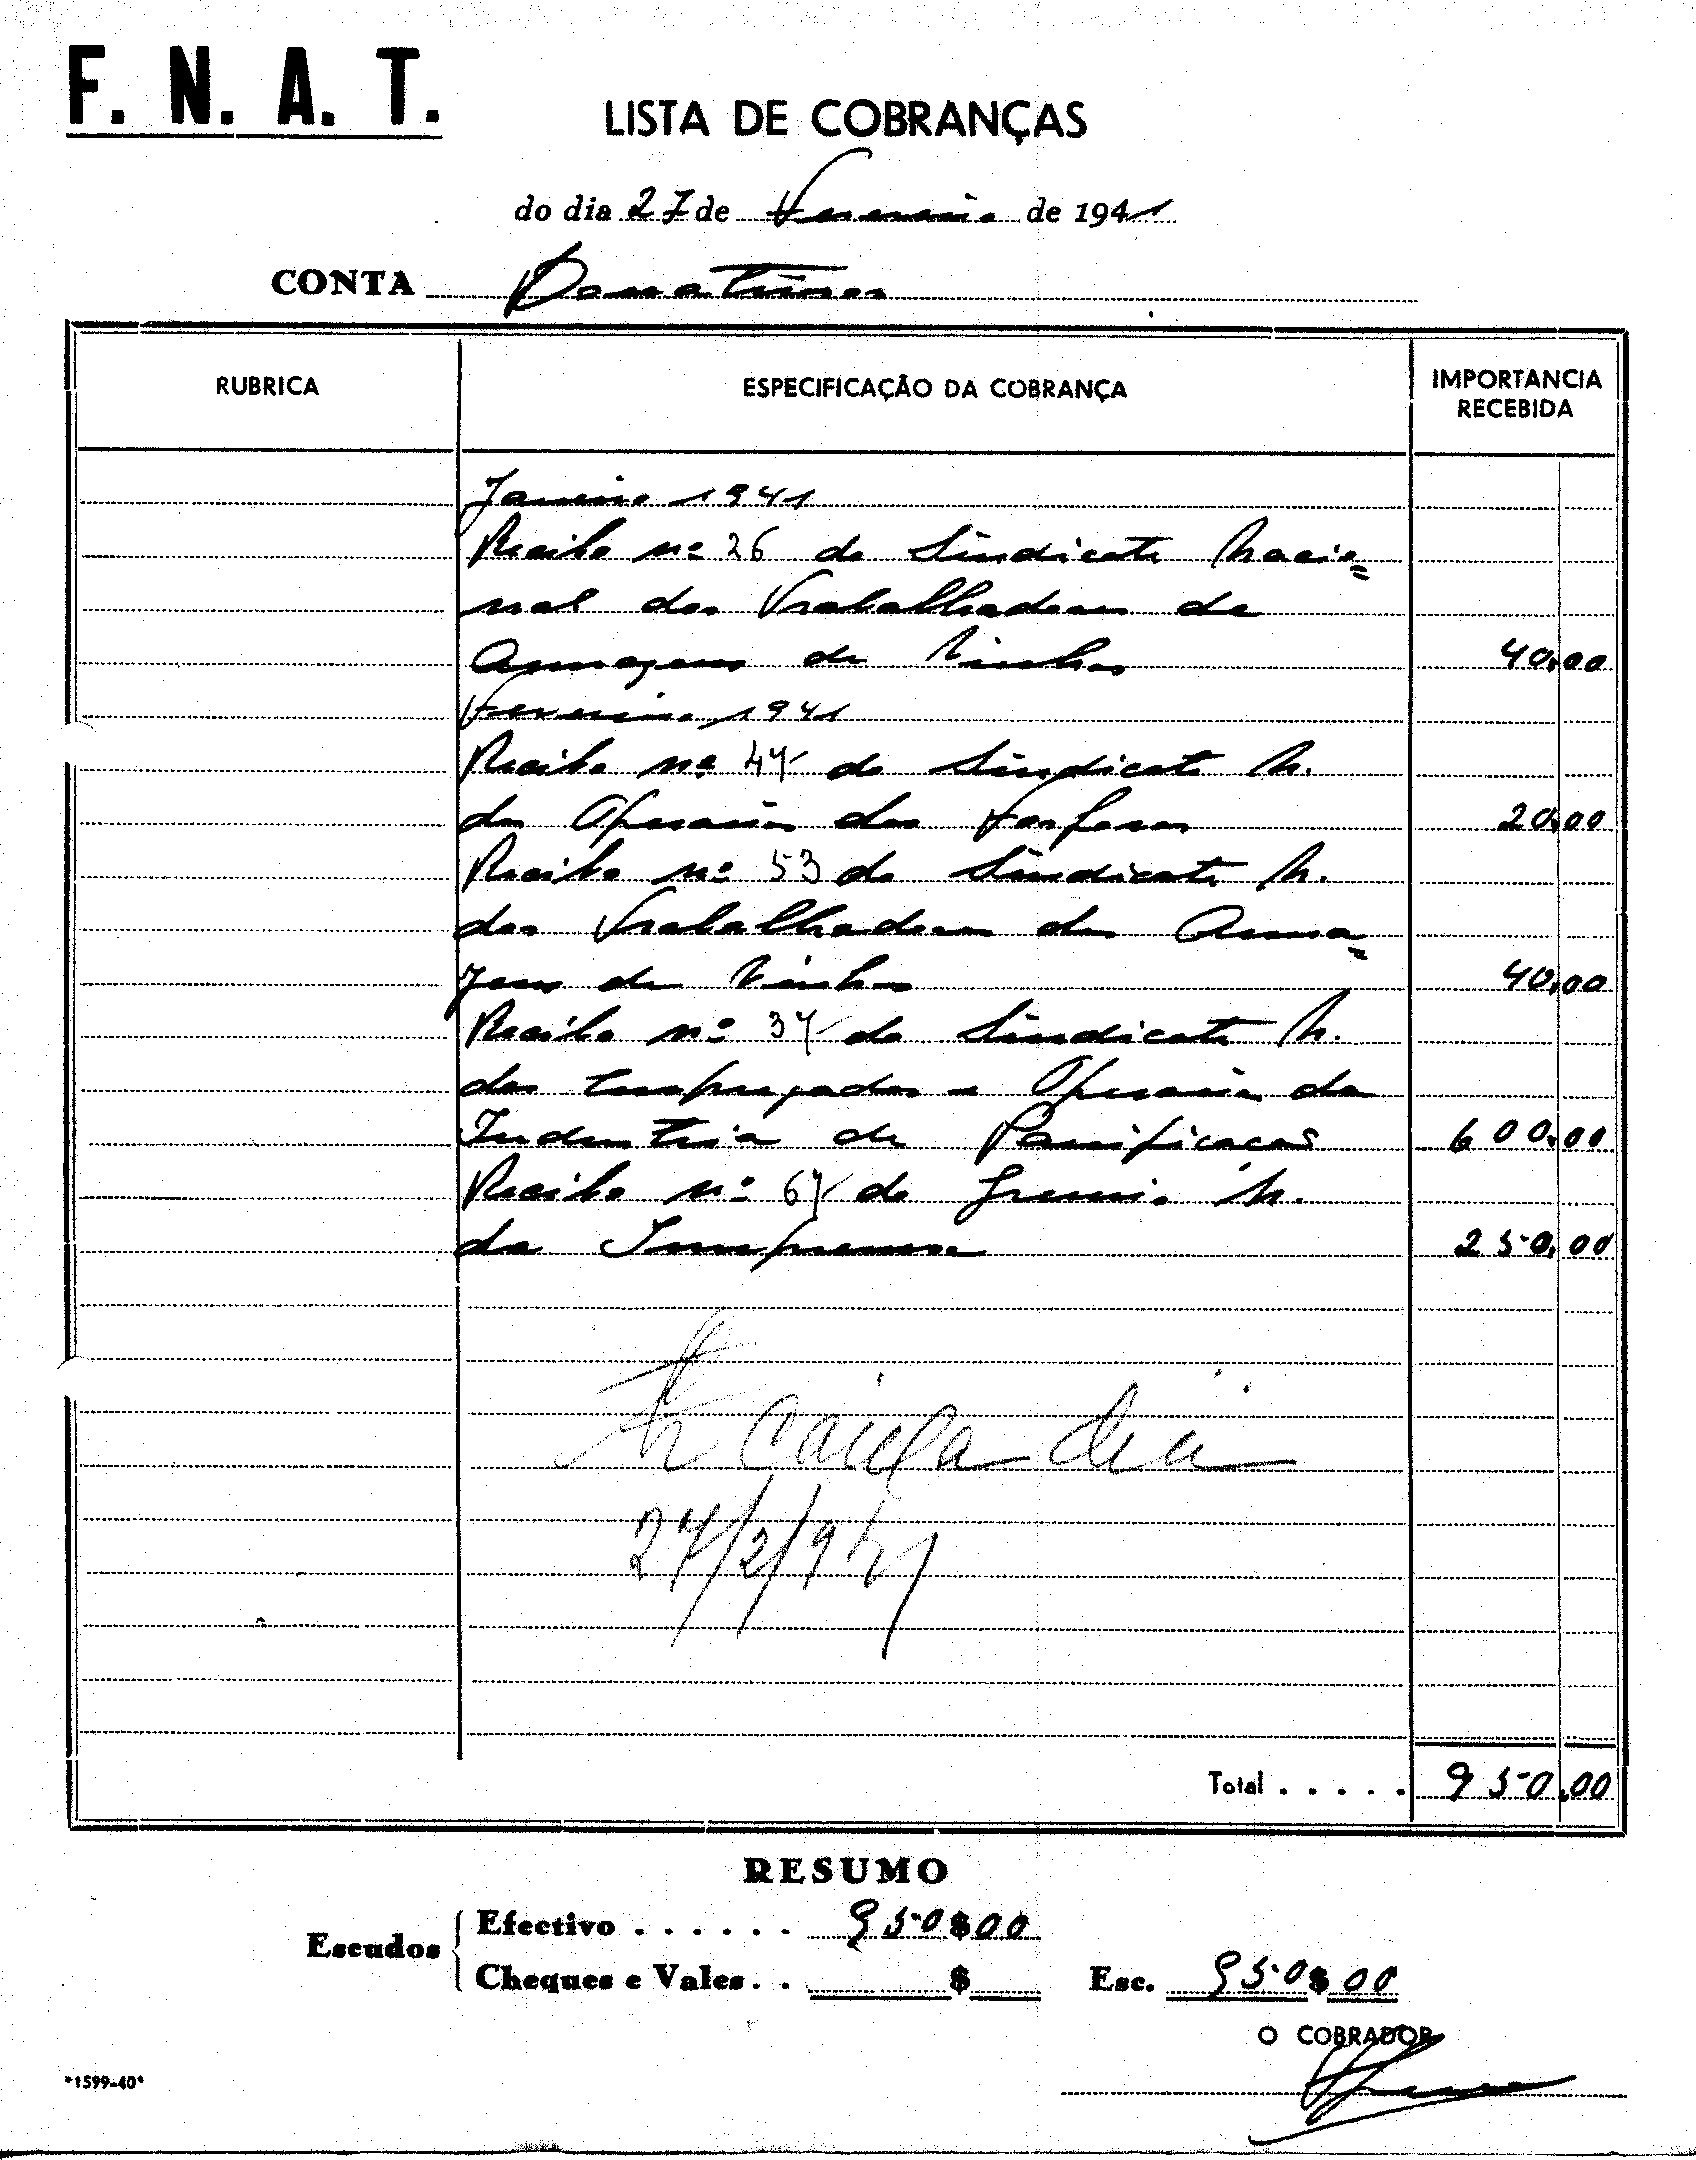 F. N. A. T.
LISTA DE COBRANÇAS
do dia 27 de Fevereiro de 1941
CONTA Donativos
RUBRICA ESPECIFICAÇÃO DA COBRANÇA IMPORTANCIA RECEBIDA
Janeiro 1941
Recibo nº 26 do Sindicato Nacio=
nal dos Trabalhadores de
Armazens de Vinhos 40,00
Fevereiro 1941
Recibo nº 47 do Sindicato N.
dos Operarios dos Fosforos 20,00
Recibo nº 53 do Sindicato N.
dos Trabalhadores dos Arma=
zens de Vinhos 40,00
Recibo nº 37 do Sindicato N.
dos Empregados e Operarios da
Industria de Panificacao 600,00
Recibo nº 67 do Gremio N.
da Imprensa 250,00
caixa dia
27/2/941
Total . . . . . 950,00
RESUMO
Escudos
Efectivo . . . . . . 950$00
Cheques e Vales. . $
Esc. 950$00
O COBRADOR
*1599-40*